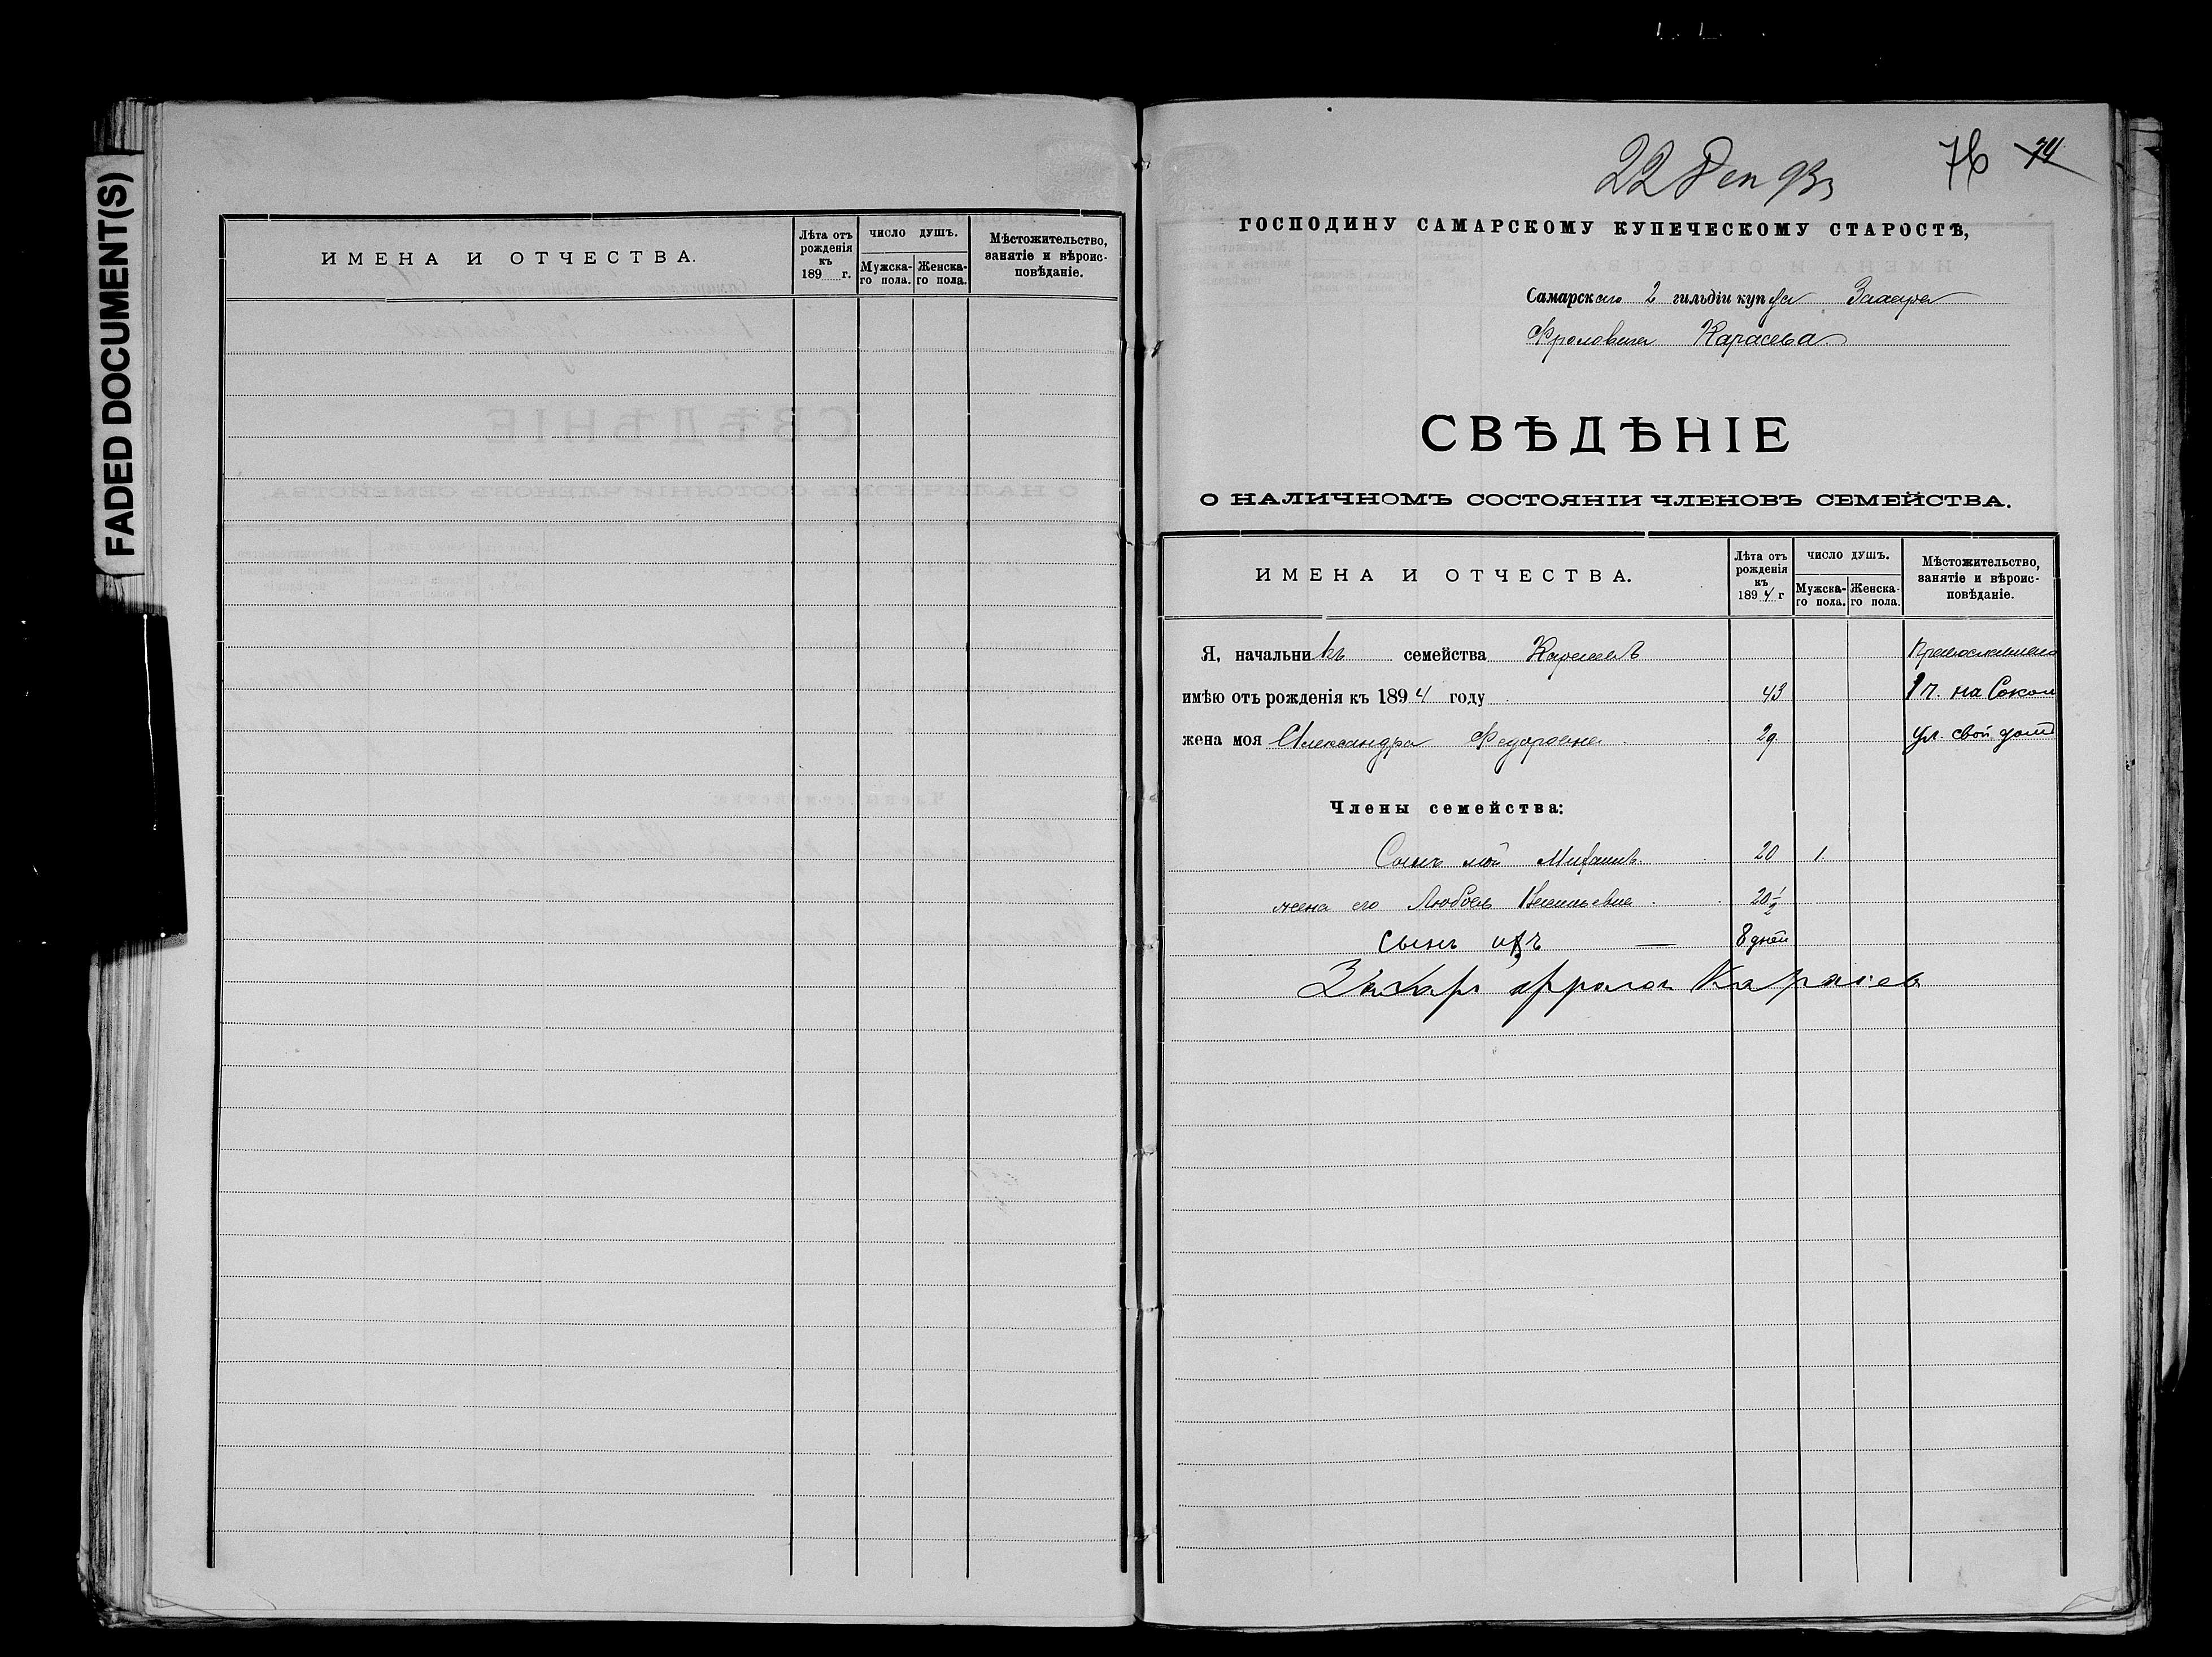 FADED DOCUMENT(S)
ИМЕНА И ОТЧЕСТВА.
Лѣта отъ рожденія къ 189 г.
ЧИСЛО ДУШЪ.
Мужска-го пола.
Женска-го пола.
Мѣстожительство, занятіе и вѣроис-повѣданіе.
22 Дек 93
76 74
ГОСПОДИНУ САМАРСКОМУ КУПЕЧЕСКОМУ СТАРОСТѢ,
Самарскаго 2 гильдіи купца Захара
Фроловича Карасева
СВѢДѢНІЕ
О НАЛИЧНОМЪ СОСТОЯНІИ ЧЛЕНОВЪ СЕМЕЙСТВА.
ИМЕНА И ОТЧЕСТВА.
Лѣта отъ рожденія къ 1894 г
ЧИСЛО ДУШЪ.
Мужска-го пола.
Женска-го пола.
Мѣстожительство, занятіе и вѣроис-повѣданіе.
Я, начальникъ семейства Карасевъ
имѣю отъ рожденія къ 1894 году 43 на Сокол
жена моя Александра Федоровна 29 ул. свой домъ
Члены семейства:
Сынъ мой 20 1
жена его Любовь Васильевна 20½
сынъ ихъ — 8 дней
Захаръ Фролов Карасев